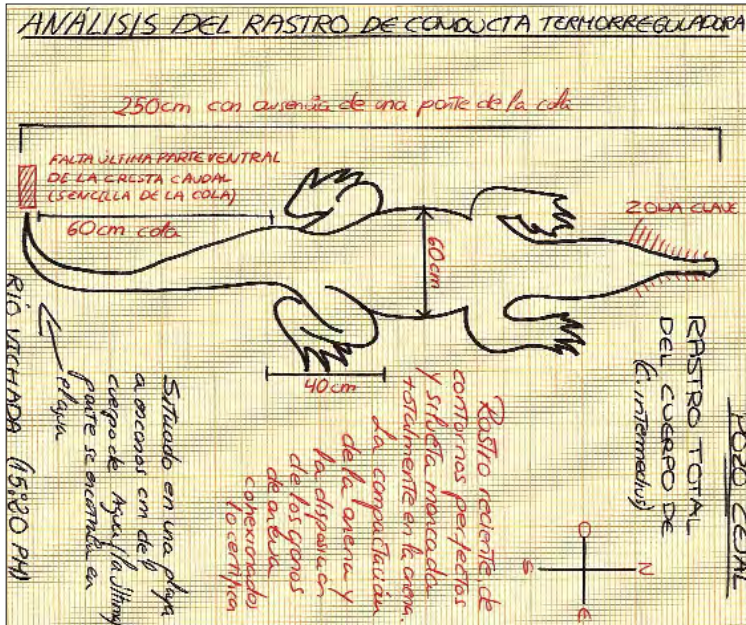 ANÁLISIS DEL RASTRO DE CONDUCTA TERMORREGULADORA
250cm con ausencia de una parte de la cola
FALTA ÚLTIMA PARTE VENTRAL
DE LA CRESTA CAUDAL
(SENCILLA DE LA COLA)
60cm cola
60cm
ZONA CLAVE
40cm
POZO CEJAL
RASTRO TOTAL
DEL CUERPO DE
(C. intermedius)
N
S
O
E
Rastro reciente, de
contornos perfectos
y silueta marcada
totalmente en la arena.
La compactación
de la arena y
la disposición
de los granos
de arena
cohexionados
lo certifica
Situado en una playa
a escasos cm del
cuerpo de Agua y la última
parte se encontraba en
playa
RÍO VICHADA (15:20 PM)